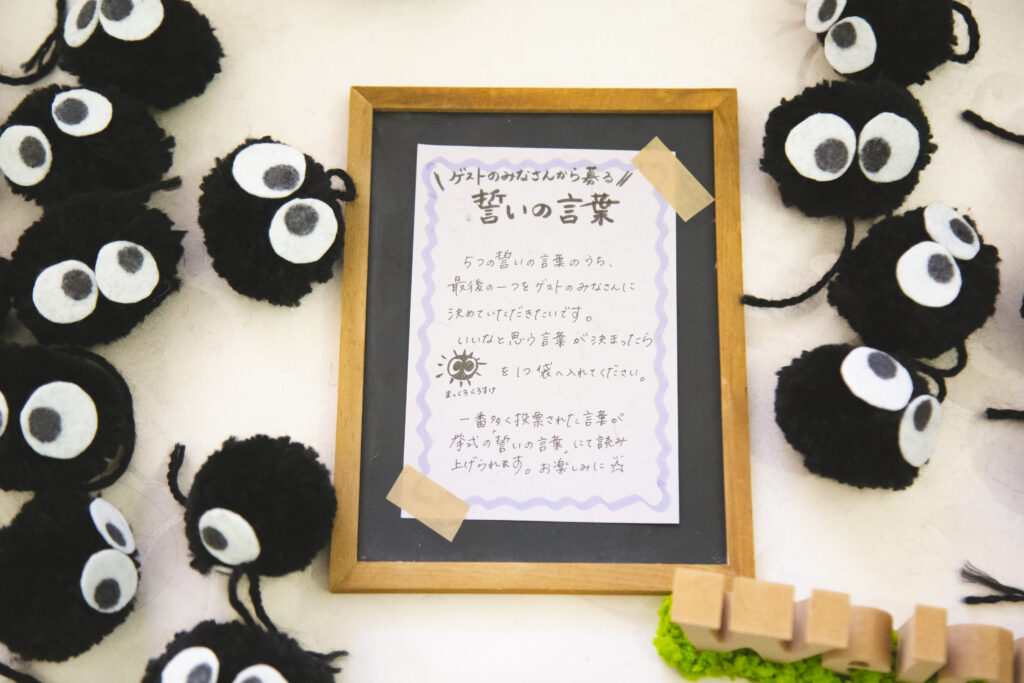 \ ゲストのみなさんから募る //
誓いの言葉
5つの誓いの言葉のうち、
最後の一つをゲストのみなさんに
決めていただきたいです。
いいなと思う言葉が決まったら
を1つ袋へ入れてください。
まっくろくろすけ
一番多く投票された言葉が
挙式の「誓いの言葉」にて読み
上げられます。お楽しみに☆